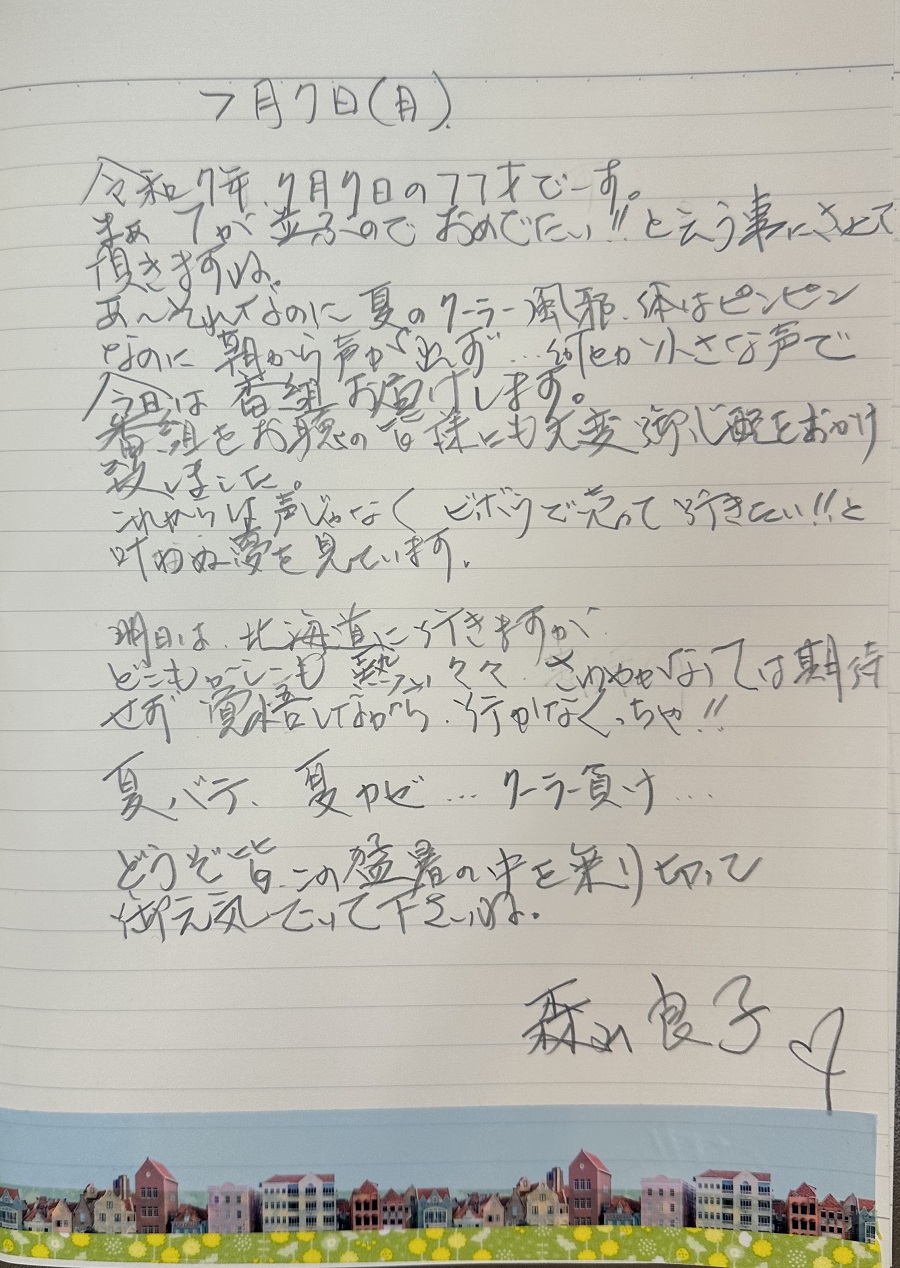 7月7日(月)
令和7年、7月7日の77才でーす。
まぁ 7が並ぶので おめでたい!!と云う事にさせて
頂きますね。
あ〜それなのに 夏のクーラー風邪、体はピンピン
なのに 朝から声が出ず…何とか小さな声で
今日は 番組お届けします。
番組をお聴の皆様にも大変御心配をおかけ
致しました。
これからは声じゃなく ビボウで売って行きたい!!と
叶わぬ夢を見ています。
明日は、北海道に行きますが
どこもかしこも 熱い々々、さわやかなっては期待
せず 覚悟しながら、行かなくっちゃ!!
夏バテ、夏カゼ… クーラー負け…
どうぞ皆、この猛暑の中を乗り切って
御元気でいて下さいね。
森山良子♡